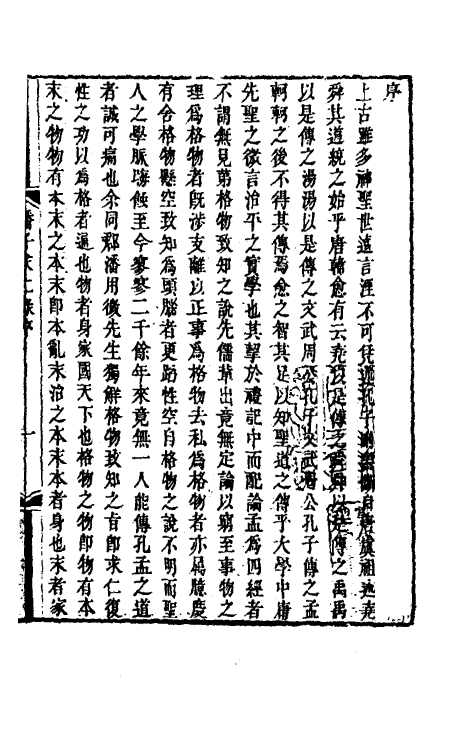 序
上古雖多神聖世遠言湮不可凭述孔子刪書斷自唐虞祖述堯
舜其道統之始乎唐韓愈有云堯以是傳之舜舜以是傳之禹禹
以是傳之湯湯以是傳之文武周公孔子文武周公孔子傳之孟
軻軻之後不得其傳焉愈之智其足以知聖道之傳乎大學中庸
先聖之微言治平之實學也其挈於禮記中而配論孟為四經者
不謂無見第格物致知之說先儒輩出竟無定論以窮至事物之
理為格物者旣涉支離以正事為格物去私為格物者亦屬臆度
有舍格物懸空致知為頭腦者更蹈性空自格物之說不明而聖
人之學脈晦蝕至今寥寥二千餘年來竟無一人能傳孔孟之道
者誠可痛也余同郡潘用微先生獨解格物致知之旨即求仁復
性之功以為格者通也物者身家國天下也格物之物即物有本
末之物物有本末之本末即本亂末治之本末本者身也末者家
潘子求仁錄序
一